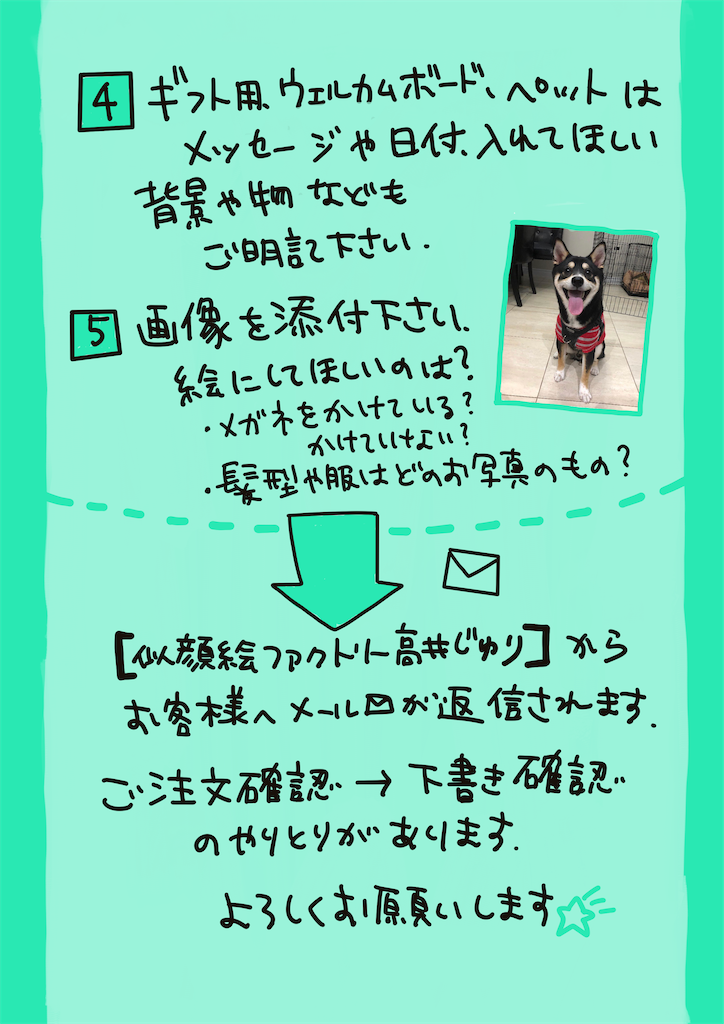 4 ギフト用、ウェルカムボード、ペットは
メッセージや日付、入れてほしい
背景や物なども
ご明記下さい.
5 画像を添付下さい、
絵にしてほしいのは?
・メガネをかけている?
かけていけない?
・髪型や服はどのお写真のもの?
[似顔絵ファクトリー高井じゅり]から
お客様へメールが返信されます.
ご注文確認→下書き確認
のやりとりがあります.
よろしくお願いします